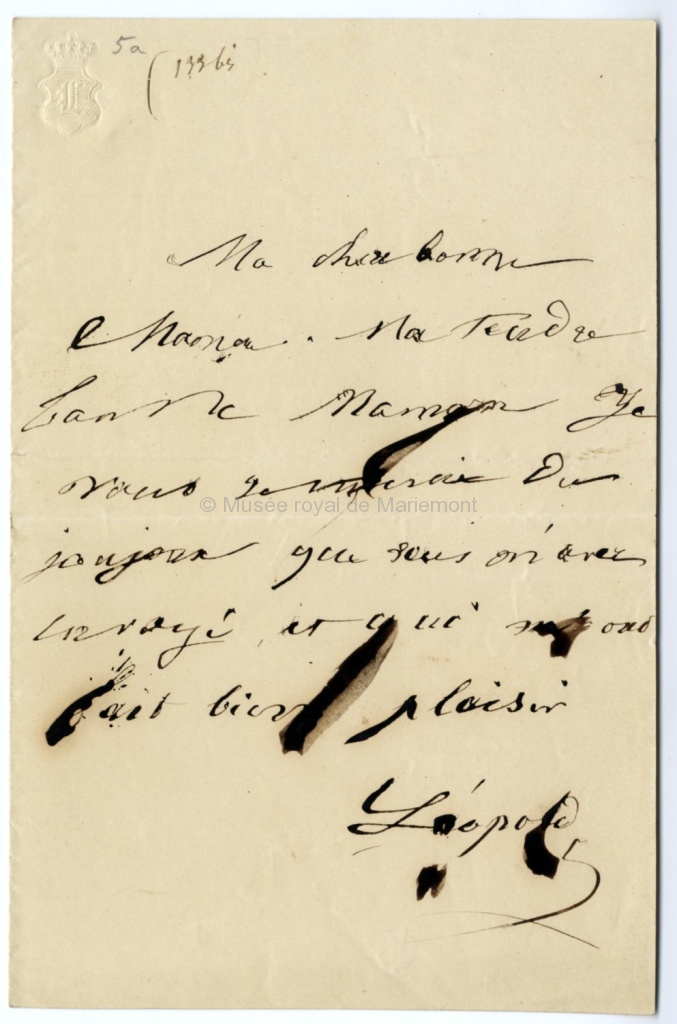 5a
133 bis
Ma chere bonne
Maman. Ma Tendre
bonne Maman Je
vous remercie du
joujoux que vous m'avez
envoyé, et qui
fait bien plaisir
Léopold
© Musée royal de Mariemont